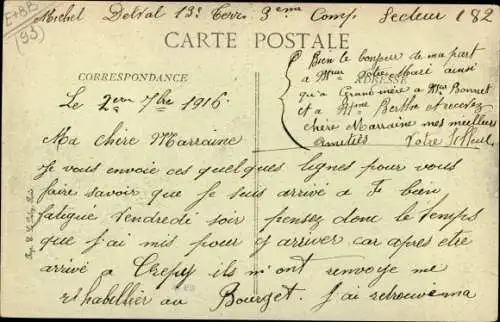 E+BB
(95)
Michel Delval 13e Terr. 3eme Comp. Secteur 182
CARTE POSTALE
CORRESPONDANCE
ADRESSE
Bien le bonjour de ma part
a Meur Votre Mari ainsi
qu'a Grand mère a Mme Bonnet
et a Mme Berthe et recevez
chère Marraine mes meilleurs
amitiés Votre filleul
Le 2 7bre 1916
Ma chère Marraine
Je vous envoie ces quelques lignes pour vous
faire savoir que je suis arrivé a bien
fatigué Vendredi soir pensez donc le temps
que j'ai mis pour y arriver car après etre
arrivé a Crepy ils m'ont renvoye me
rhabillier au Bourget. J'ai retrouver ma